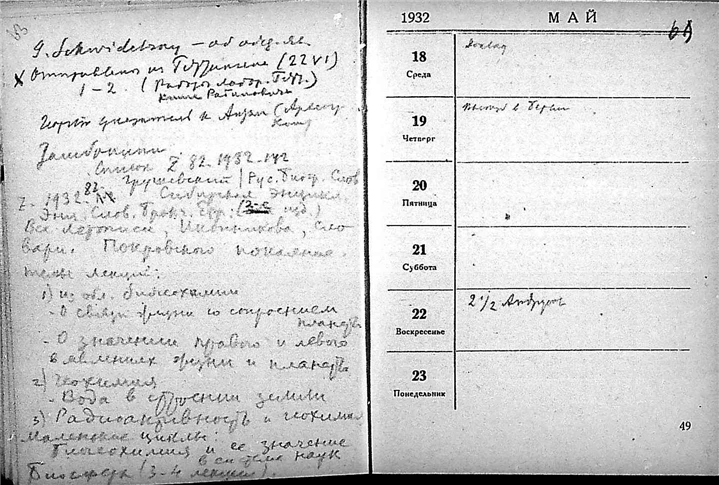 63
G. Schwidetzky — об обез. яз.
X Отправлено из Геттингена (22 VI)
1-2. (Работы лабор. Гетт.)
книге Радиговича
к Анри
Список Z 82. 1932. 142
Грушевский | Рус. Биогр. Слов
Z. 1932. 82. Сибирская Энцикл.
Энц. Слов. Брокг. Ефр. (3-е изд.)
Все летописи, Иконникова, Сло
вари. Покровского
лекций:
1) из обл. биогеохимии
- О связи жизни со строением
планеты
- О значении правого и левого
в явлениях жизни и планеты
2) геохимия
- Вода в строении земли
3) Радиоактивность и геохимия
Маленькие циклы:
Биогеохимия и ее значение
в системе наук
Биосфера (3-4 лекции).
1932 МАЙ
18 Доклад
Среда
19 Выезд в Берлин
Четверг
20
Пятница
21
Суббота
22 2 1/2
Воскресенье
23
Понедельник
49